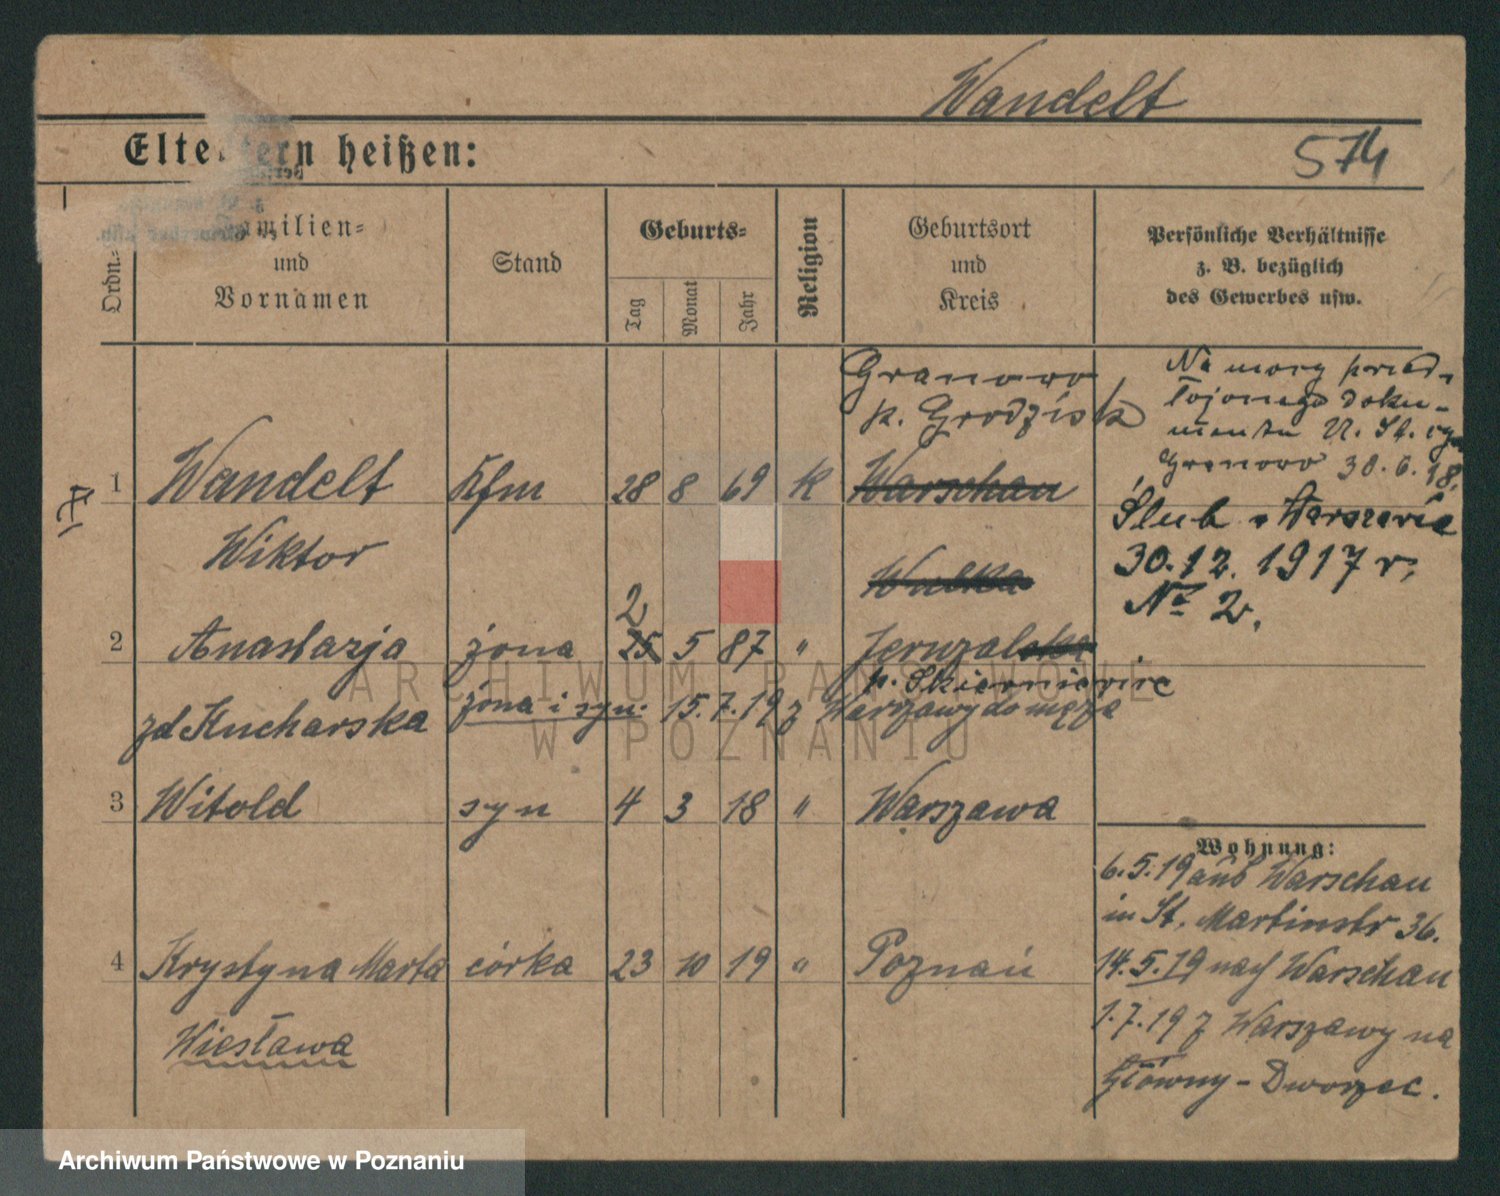 Wandelt
Elte ern heißen:
574
Ordn.=
amilien=
und
Vornamen
Stand
Geburts=
Tag
Monat
Jahr
Religion
Geburtsort
und
Kreis
Persönliche Verhältnisse
z. B. bezüglich
des Gewerbes usw.
Granowo
p. Grodzisk
Na mocy przed-
łożonego doku-
mentu U. St. cyw.
Granowo 30.6.18.
1 Wandelt Kfm 28 8 69 K Warschau
Wiktor
Ślub w Warszawie
30.12.1917 r.
№ 2.
Wulka
2
2 Anastazja żona 25 5 87 " Jeruzalska
p. Skierniewice
zd Kucharska żona i syn: 15.7.19 z Warszawy do męża
3 Witold syn 4 3 18 " Warszawa
Wohnung:
6.5.19 aus Warschau
in St. Martinstr 36.
4 Krystyna Marta córka 23 10 19 " Poznań
Wiesława
14.5.19 nach Warschau
1.7.19 z Warszawy na
Główny-Dworzec.
ARCHIWUM PAŃSTWOWE
W POZNANIU
Archiwum Państwowe w Poznaniu